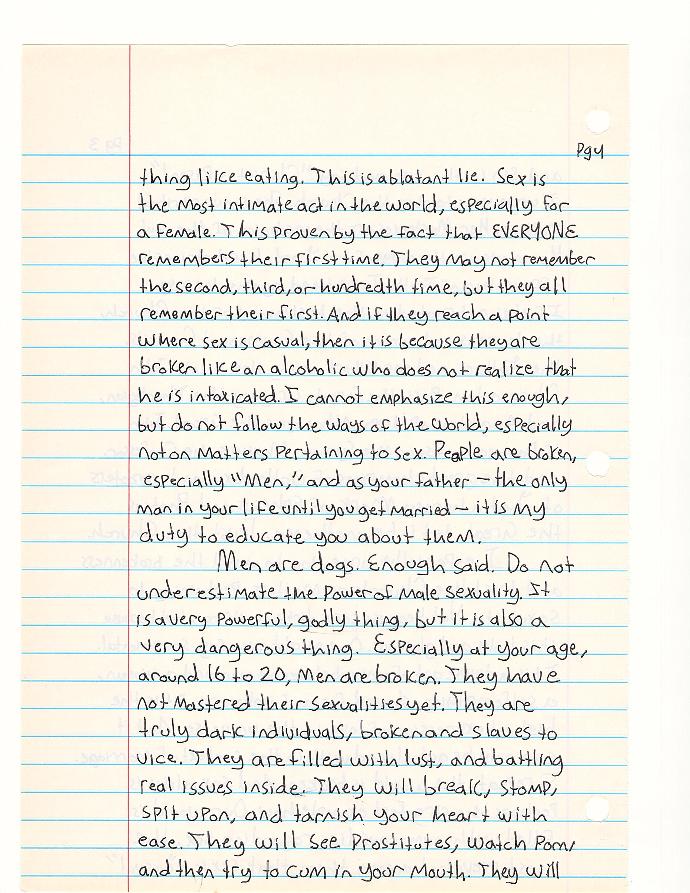 Pg4
thing like eating. This is ablatant lie. Sex is
the most intimate act in the world, especially for
a female. This proven by the fact that EVERYONE
remembers their first time. They may not remember
the second, third, or hundredth time, but they all
remember their first. And if they reach a point
where sex is casual, then it is because they are
broken like an alcoholic who does not realize that
he is intoxicated. I cannot emphasize this enough,
but do not follow the ways of the world, especially
not on matters pertaining to sex. People are broken,
especially "Men," and as your father – the only
man in your life until you get married – it is my
duty to educate you about them.
Men are dogs. Enough said. Do not
underestimate the power of male sexuality. It
is a very powerful, godly thing, but it is also a
very dangerous thing. Especially at your age,
around 16 to 20, men are broken. They have
not mastered their sexualities yet. They are
truly dark individuals, broken and slaves to
vice. They are filled with lust, and battling
real issues inside. They will break, stomp,
spit upon, and tarnish your heart with
ease. They will see prostitutes, watch porn,
and then try to cum in your mouth. They will